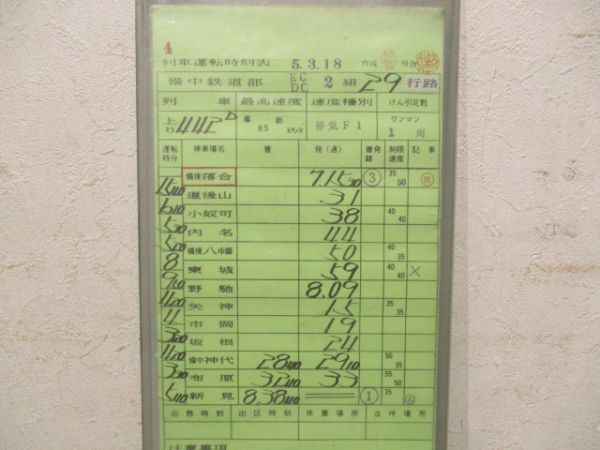 4
列車運転時刻表 5.3.18 作成
備中鉄道部 EC DC 2 組 29 行路
列車 最高速度 速度種別 けん引定数
上り 442D 幕新 85 KM/H 停気F1 ワンマン 1 両
運転時分 停車場名 着 発(通) 着発線 制限速度 記事
備後落合 7.15 30 ③ 35 50
15 40 道後山 31
6 10 小奴可 38 40 40
5 50 内名 44
5 50 備後八幡 50 40 35
8 東城 59 40 40 ×
9 50 野馳 8.09
11 00 矢神 15 35 35
4 市岡 19
3 50 坂根 24
11 00 備中神代 28 40 29 10 50 35
3 30 布原 32 40 33 55 50
5 40 新見 8.38 40 ① 35
出務時刻 出区時刻 休養場所 点呼場所
注意事項